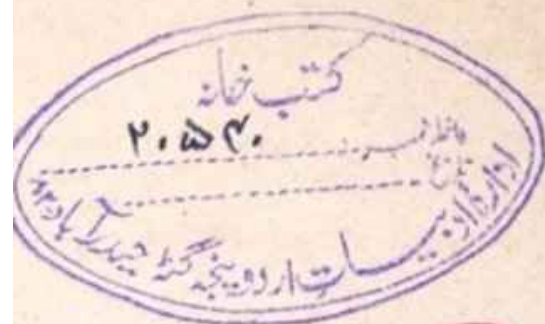 کتب خانہ
داخلہ نمبر ۲۰۵۴۰
تاریخ
ادارہ ادبیات اردو پنجہ گٹہ حیدرآباد ۸۲